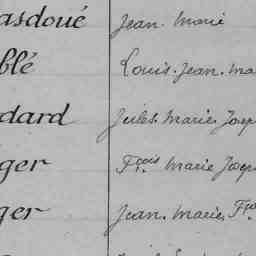 asdoué Jean Marie
blé Louis. Jean. Ma
dard Jules. Marie. Josep
ger Fçois Marie Josep
ger Jean. Marie, Fço